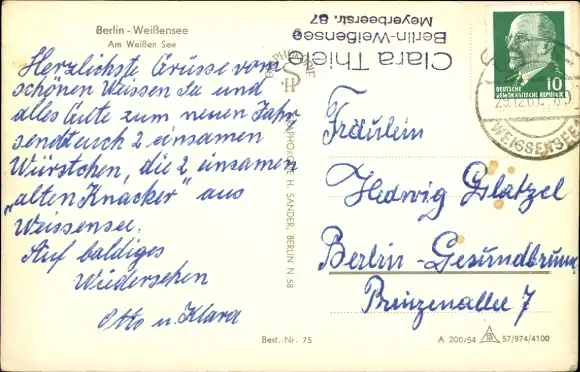 Berlin - Weißensee
Am Weißen See
Herzlichste Grüsse vom
schönen Weissen See und
alles Gute zum neuen Jahr
sendt euch 2 einsamen
Würstchen, die 2 einsamen
„alten Knacker" aus
Weissensee.
Auf baldiges
Wiedersehen
Otto u. Klara
Clara Thiele
Berlin-Weißensee
Meyerbeerstr. 87
H. SANDER, BERLIN N 58
DEUTSCHE
DEMOKRATISCHE REPUBLIK
10
WEISSENSEE
Fräulein
Hedwig Glätzel
Berlin - Gesundbrunn
Prinzenallee 7
Best.-Nr. 75
A 200/54
57/974/4100